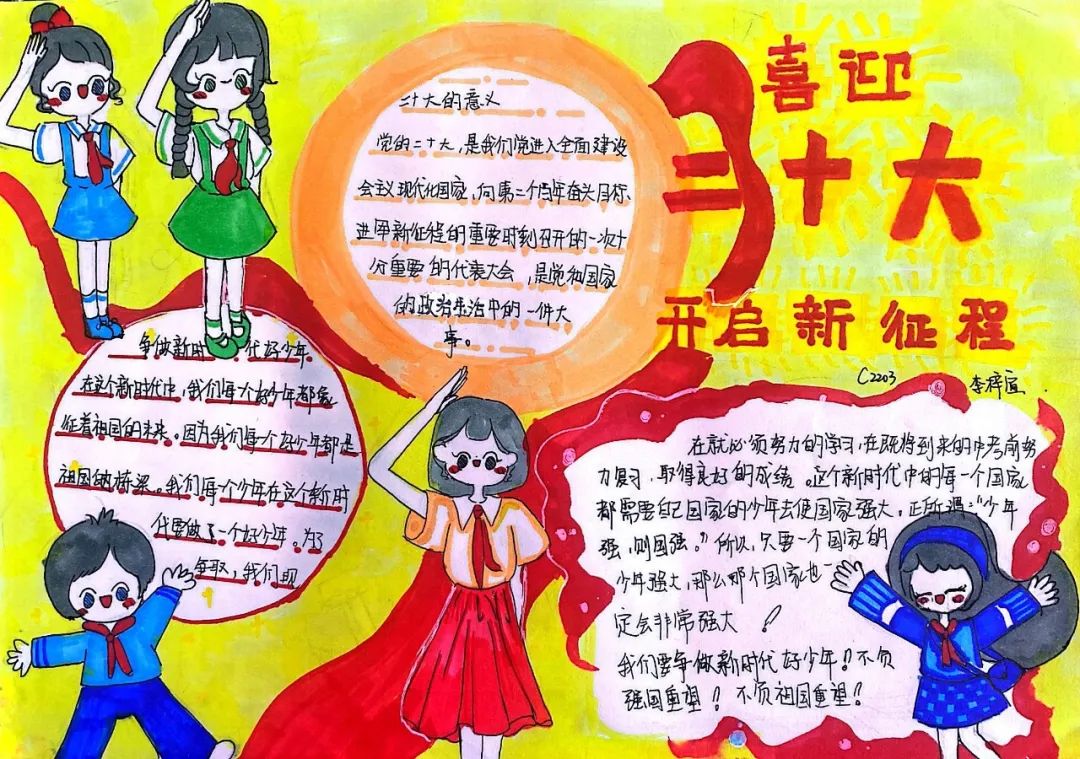 喜迎
二十大
开启新征程
C2203 李梓宜
二十大的意义
党的二十大，是我们党进入全面建设
会主义现代化国家，向第二个百年奋斗目标
进军新征程的重要时刻召开的一次十
分重要的代表大会，是党和国家
的政治生活中的一件大
事。
争做新时代好少年
在这个新时代中，我们每个好少年都象
征着祖国的未来。因为我们每一个好少年都是
祖国的桥梁。我们每一个少年在这个新时
代要做了一个好少年。为了
争取，我们现
在就必须努力的学习，在既将到来的中考前努
力复习，取得良好的成绩。这个新时代中的每一个国家
都需要自己国家的少年去使国家强大，正所谓：“少年
强，则国强。”所以，只要一个国家的
少年强大，那么那个国家也一
定会非常强大！
我们要争做新时代好少年！不负
强国重望！！不负祖国重望！！